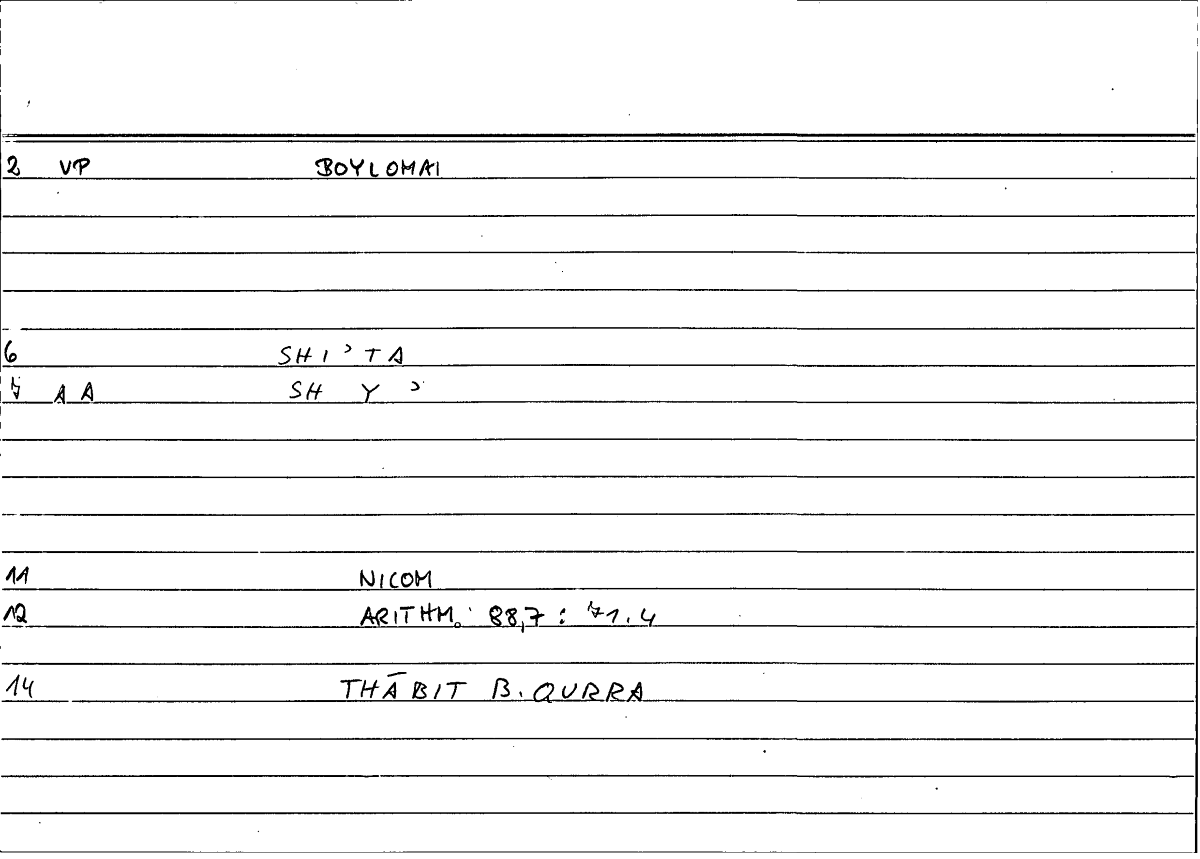 2 VP BOYLOMAI
6 SHI ʾ TA
7 AA SH Y ʾ
11 NICOM
12 ARITHM. 88,7 : 71.4
14 THĀBIT B. QURRA